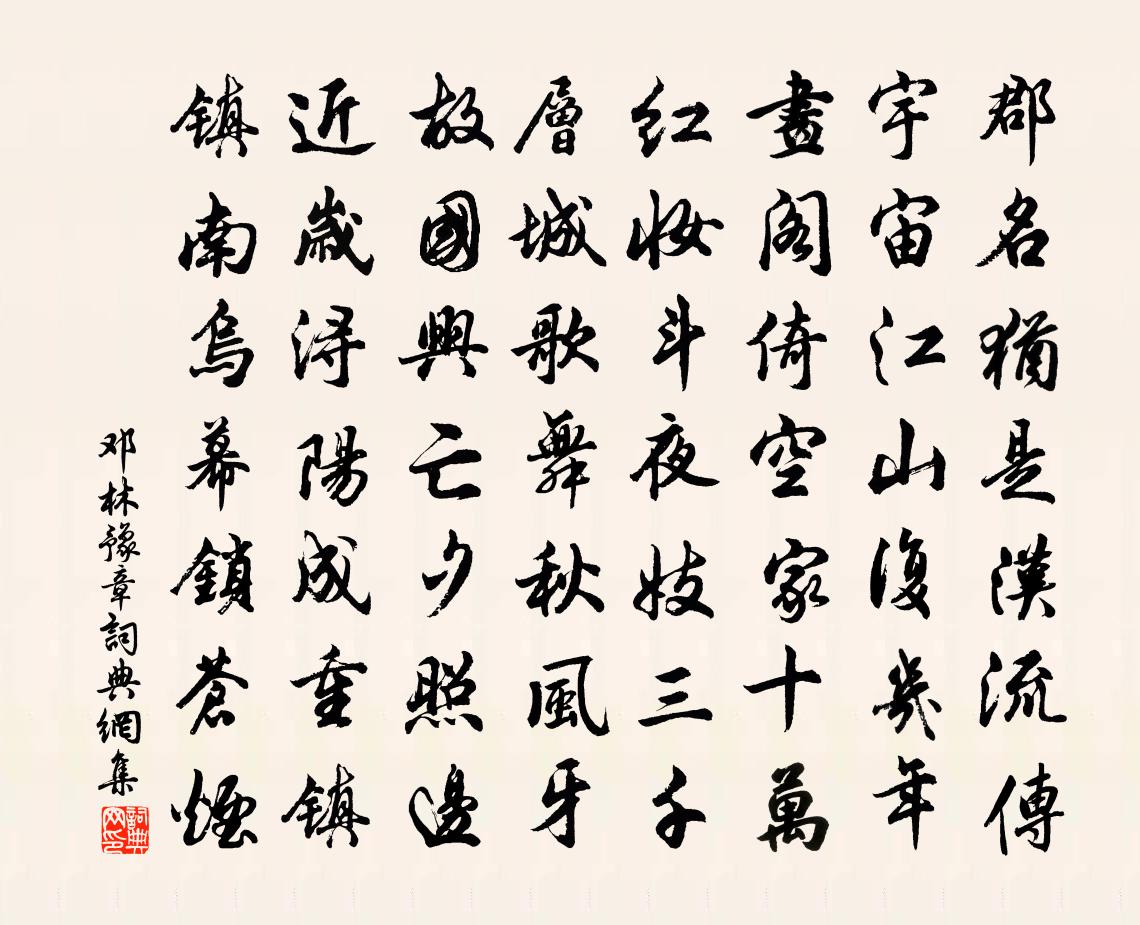 郡名猶是漢流傳
宇宙江山復幾年
畫閣倚空家十萬
紅妝斗夜妓三千
層城歌舞秋風牙
故國興亡夕照邊
近歲浔陽成重镇
镇南烏幕鎖蒼煙
邓林豫章詞典網集
詞典网印